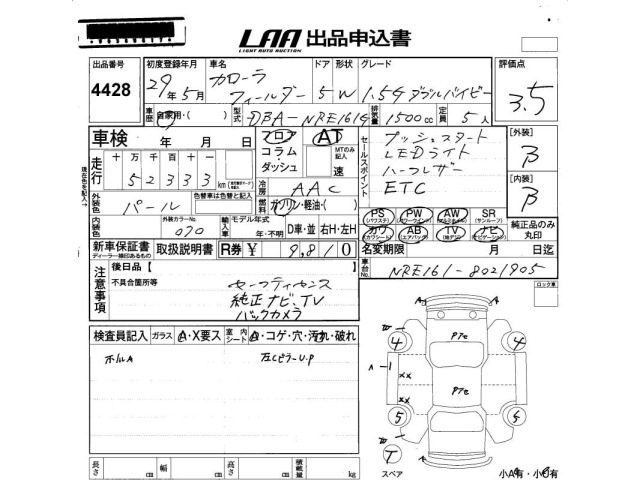 LAA 出品申込書
LIGHT AUTO AUCTION
出品番号 初度登録年月 車名 ドア 形状 グレード 評価点
4428 29年5月 カローラフィールダー 5 W 1.5G ダブルバイビー 3.5
車歴 自家用・( ) 型式 DBA-NRE161G 排気量 1500cc 定員 5人
車検 年 月 日 フロア コラム・ダッシュ AT MTのみ記入 速
セールスポイント プッシュスタート
LEDライト
ハーフレザー
ETC
[外装] B
[内装] B
走行 十万千百十 52333 km
現在色を記入
冷房 AAC
外装色 パール 色替車は色替と記入 燃料 ガソリン・軽油・( )
内装色 外装カラーNo. 070 輸入車 モデル年式 年・不明 D車・並 右H・左H
PS PW AW SR
(パワステ) (サンルーフ)
カワ AB TV ナビ
(カワシート) (エアバッグ) (ナビゲーション)
純正品のみ丸印
新車保証書 取扱説明書 R券 ¥ 9,810 名変期限 月 日迄
ディーラー捺印あるもの
車台No. NRE161-8021905
注意事項 後日品[ ]
不具合箇所等 セーフティセンス
純正ナビ、TV
バックカメラ
ロック車
検査員記入 ガラス A・X要ス 室内シート A・コゲ・穴・汚れ・破れ
ホイルA 左CピラーU.P
W 4 アセ 4
ヘ-1 xx アセ
xx
5 5
W
T
スペア
長さ cm 幅 cm 高さ cm 積載量 kg 小A有・小U有